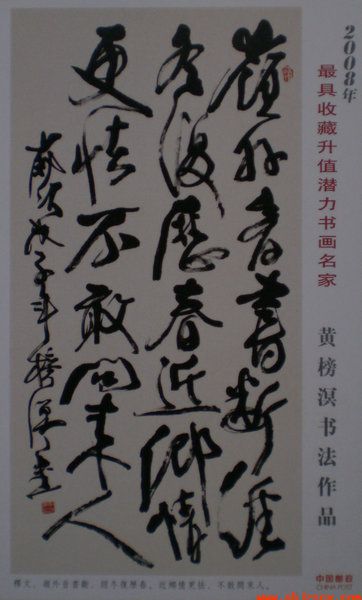 2008年
最具收藏升值潜力书画名家
黄榜溟书法作品
嶺外音書斷經
冬復歷春近鄉情
更怯不敢問來人
戊子年榜溟書
釋文、嶺外音書斷、經冬復歷春、近鄉情更怯、不敢問來人。
中国邮政
CHINA POST